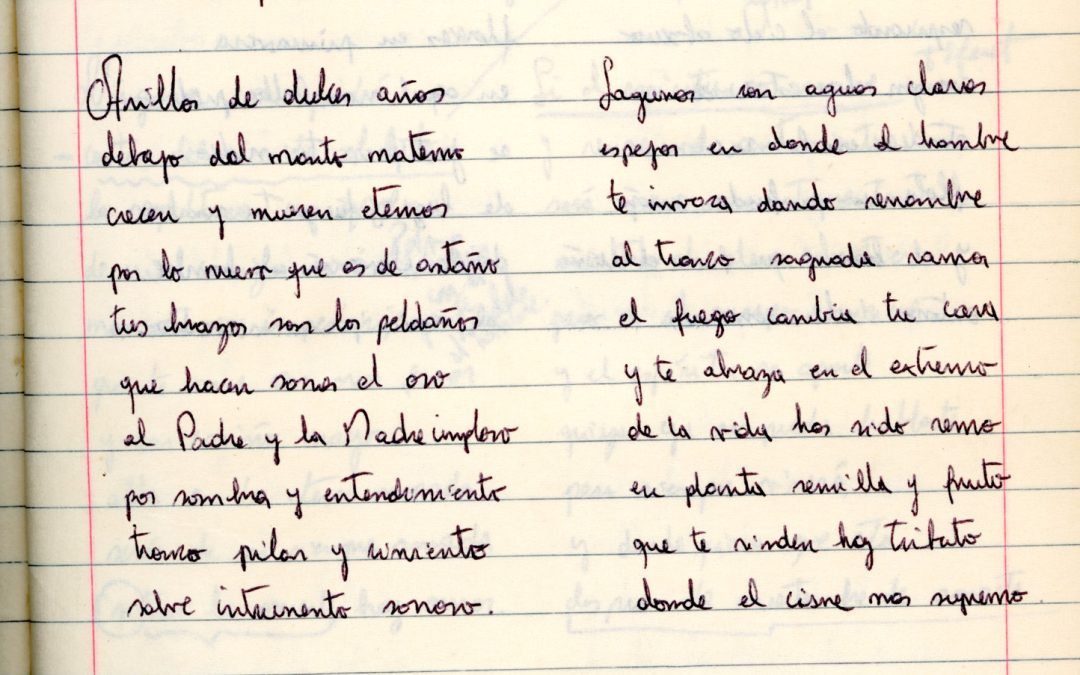 Anillos de dulces años
debajo del manto materno
crecen y mueren eternos
por lo nuevo que es de antaño
tus brazos son los peldaños
que hacen sonar el oro
al Padre y la Madre imploro
por sombra y entendimiento
tronco pilar y cimiento
salve intrumento sonoro.
Lagunas son aguas claras
espejos en donde el hombre
te invoca dando renombre
al tronco sagrada rama
el fuego cambia tu cara
y te abraza en el extremo
de la vida has sido remo
en planta semilla y fruto
que te rinden hoy tributo
donde el cisne mas supremo.